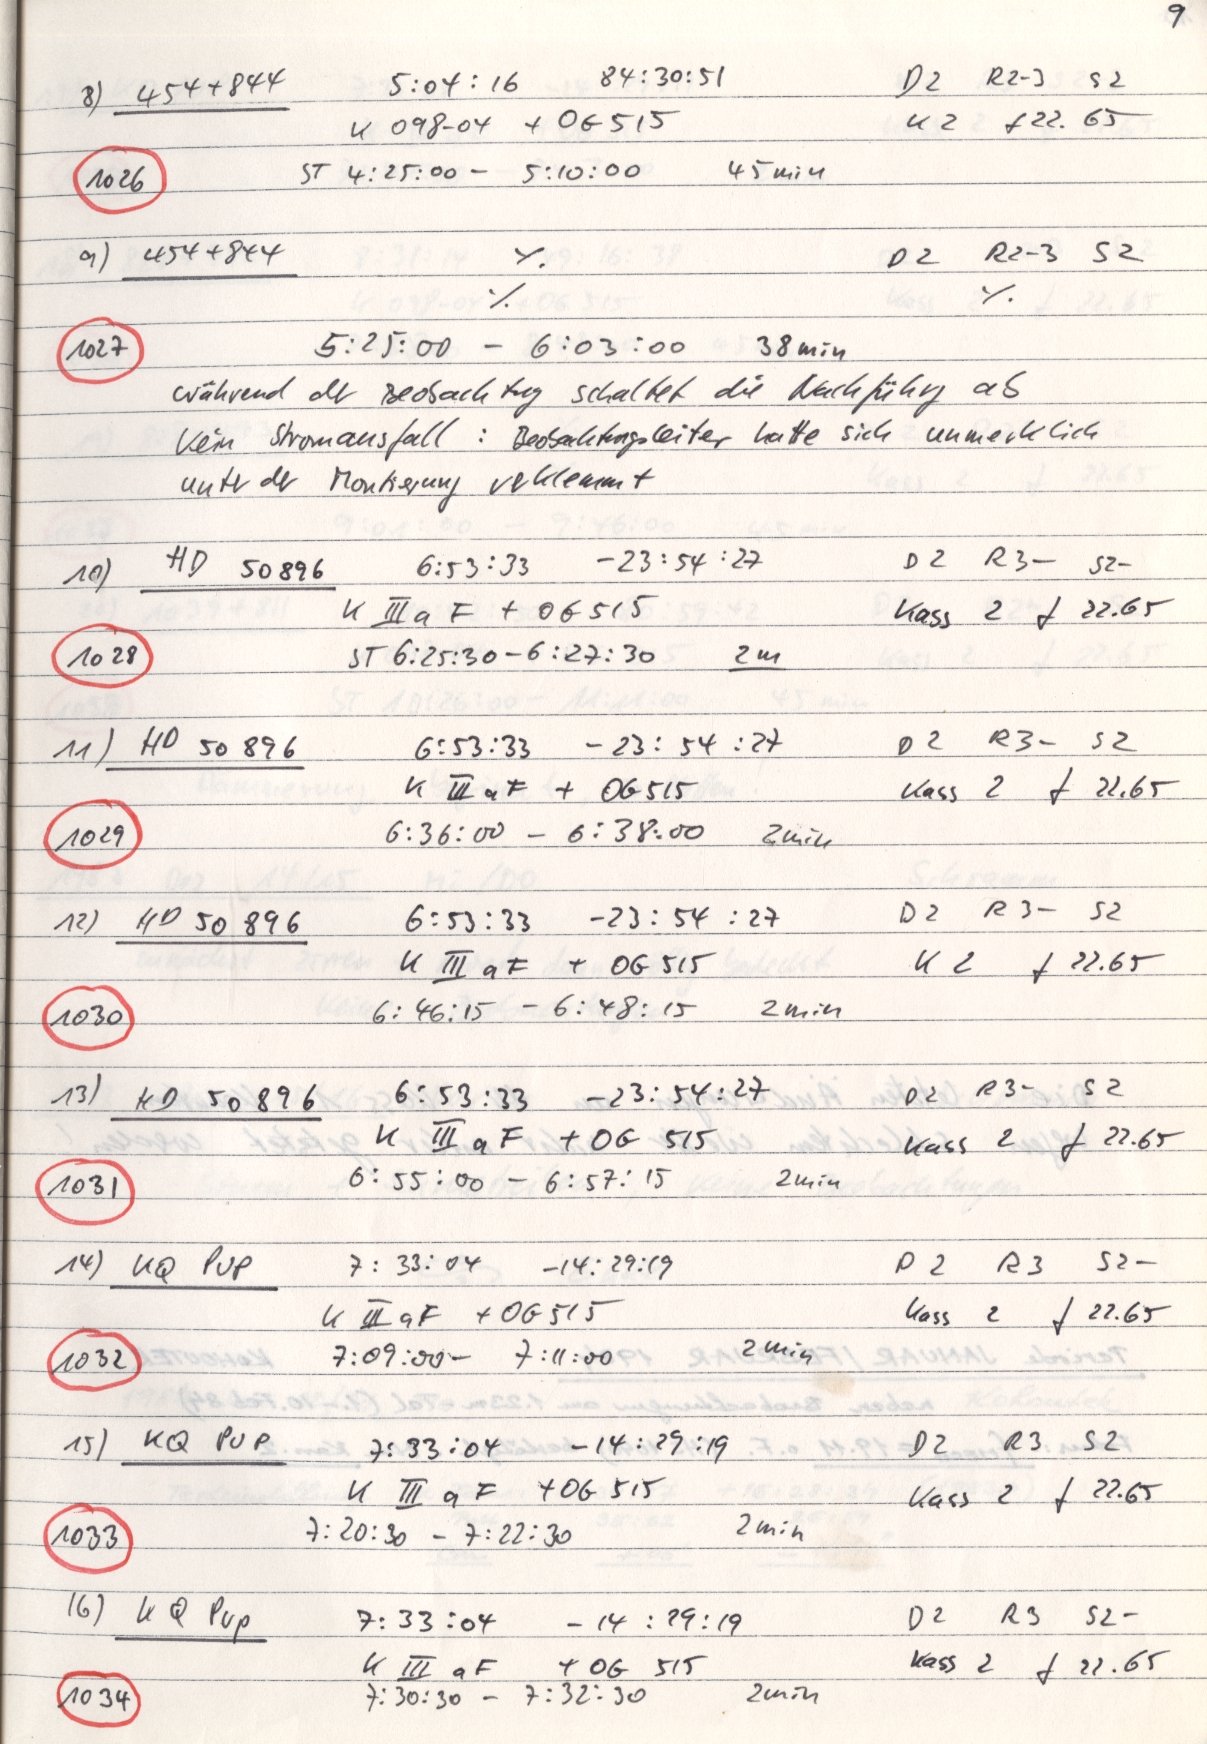 9
8) 454+844 5:04:16 84:30:51 D2 R2-3 S2
K 098-04 + OG515 K2 f 22.65
1026 ST 4:25:00 - 5:10:00 45min
9) 454+844 ·/. D2 R2-3 S2
·/. ·/.
1027 5:25:00 - 6:03:00 38min
während der Beobachtung schaltet die Nachführung ab
Kein Stromausfall : Beobachtungsleiter hatte sich unmerklich
unter der Montierung verklemmt
10) HD 50896 6:53:33 -23:54:27 D2 R3- S2-
K III a F + OG515 Kass 2 f 22.65
1028 ST 6:25:30 - 6:27:30 2m
11) HD 50896 6:53:33 -23:54:27 D2 R3- S2
K III a F + OG515 Kass 2 f 22.65
1029 6:36:00 - 6:38:00 2min
12) HD 50896 6:53:33 -23:54:27 D2 R3- S2
K III a F + OG515 K2 f 22.65
1030 6:46:15 - 6:48:15 2min
13) HD 50896 6:53:33 -23:54:27 D2 R3- S2
K III a F + OG 515 Kass 2 f 22.65
1031 6:55:00 - 6:57:15 2min
14) KQ Pup 7:33:04 -14:29:19 D2 R3 S2-
K III a F + OG515 Kass 2 f 22.65
1032 7:09:00 - 7:11:00 2min
15) KQ Pup 7:33:04 -14:29:19 D2 R3 S2-
K III a F + OG515 Kass 2 f 22.65
1033 7:20:30 - 7:22:30 2min
16) KQ Pup 7:33:04 -14:29:19 D2 R3 S2-
K III a F + OG 515 Kass 2 f 22.65
1034 7:30:30 - 7:32:30 2min